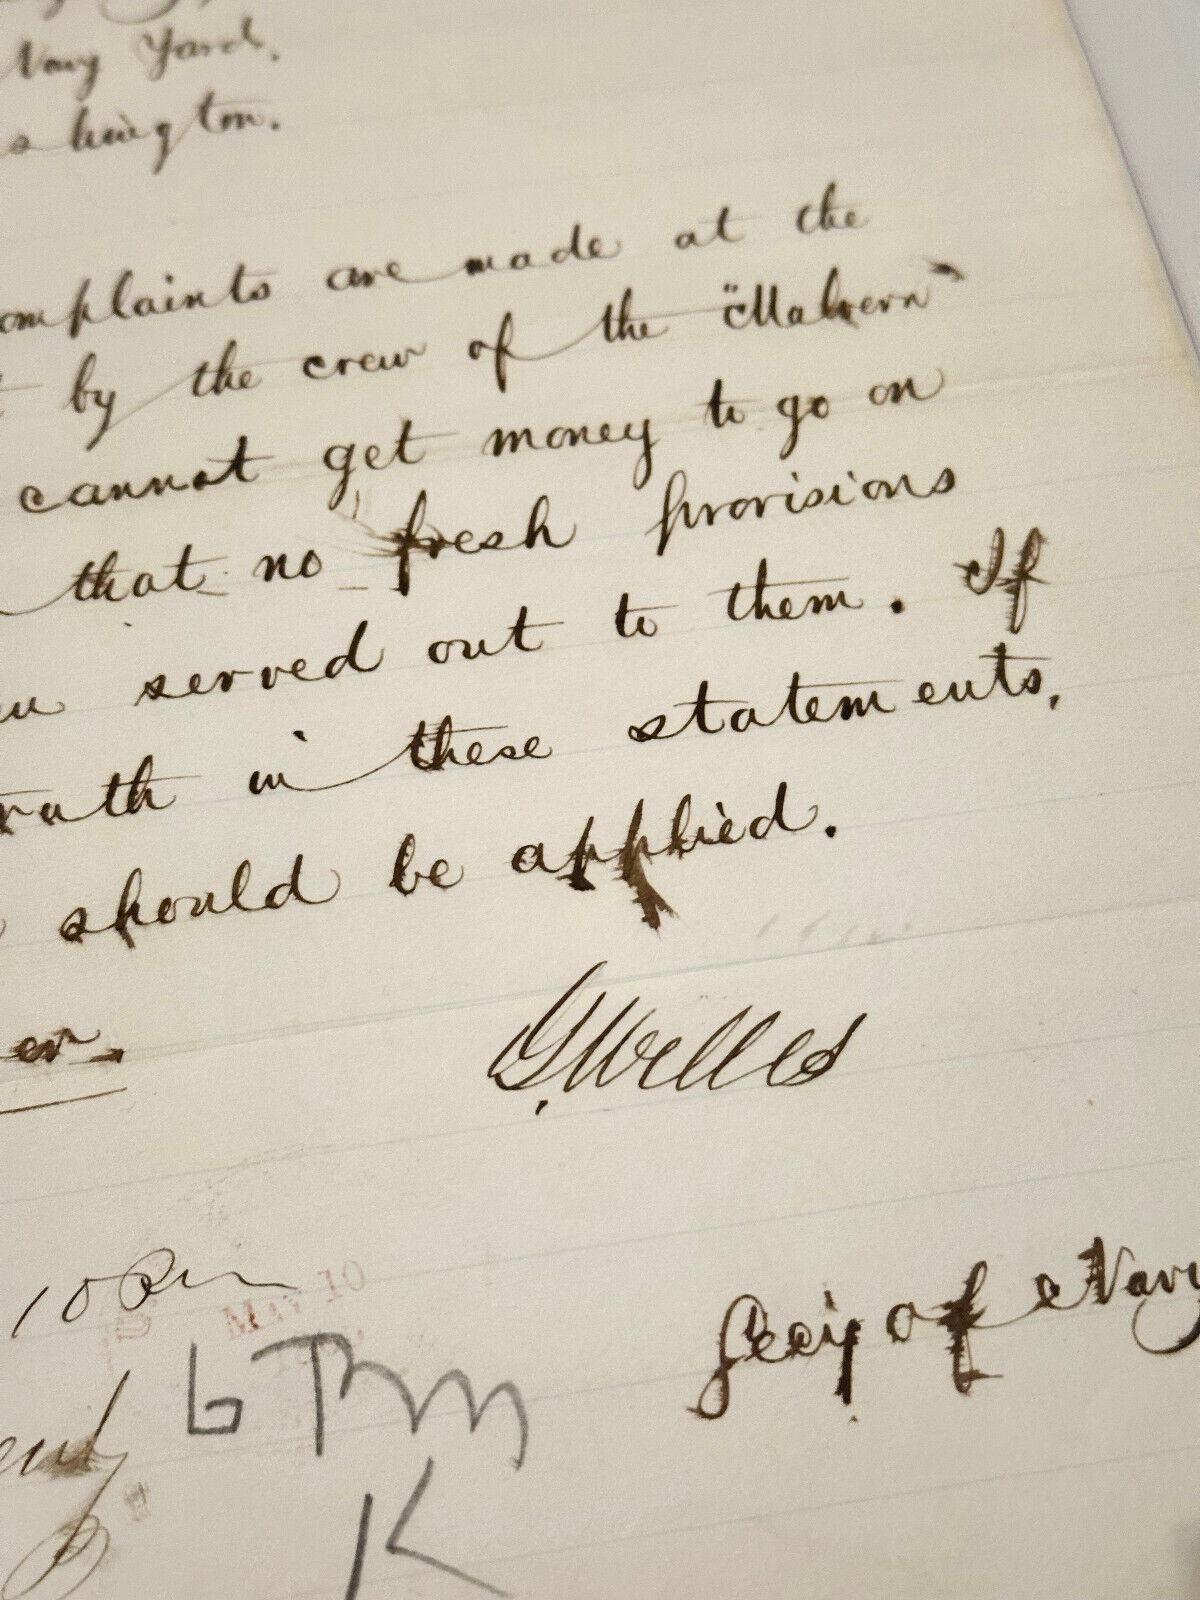 Navy Yard.
shington.
omplaints are made at the
t by the crew of the "Malvern"
cannot get money to go on
that no fresh provisions
en served out to them. If
ruth in these statements,
should be applied.
er.
G Welles
10
May 10
Secy of Navy
6 Pm
K